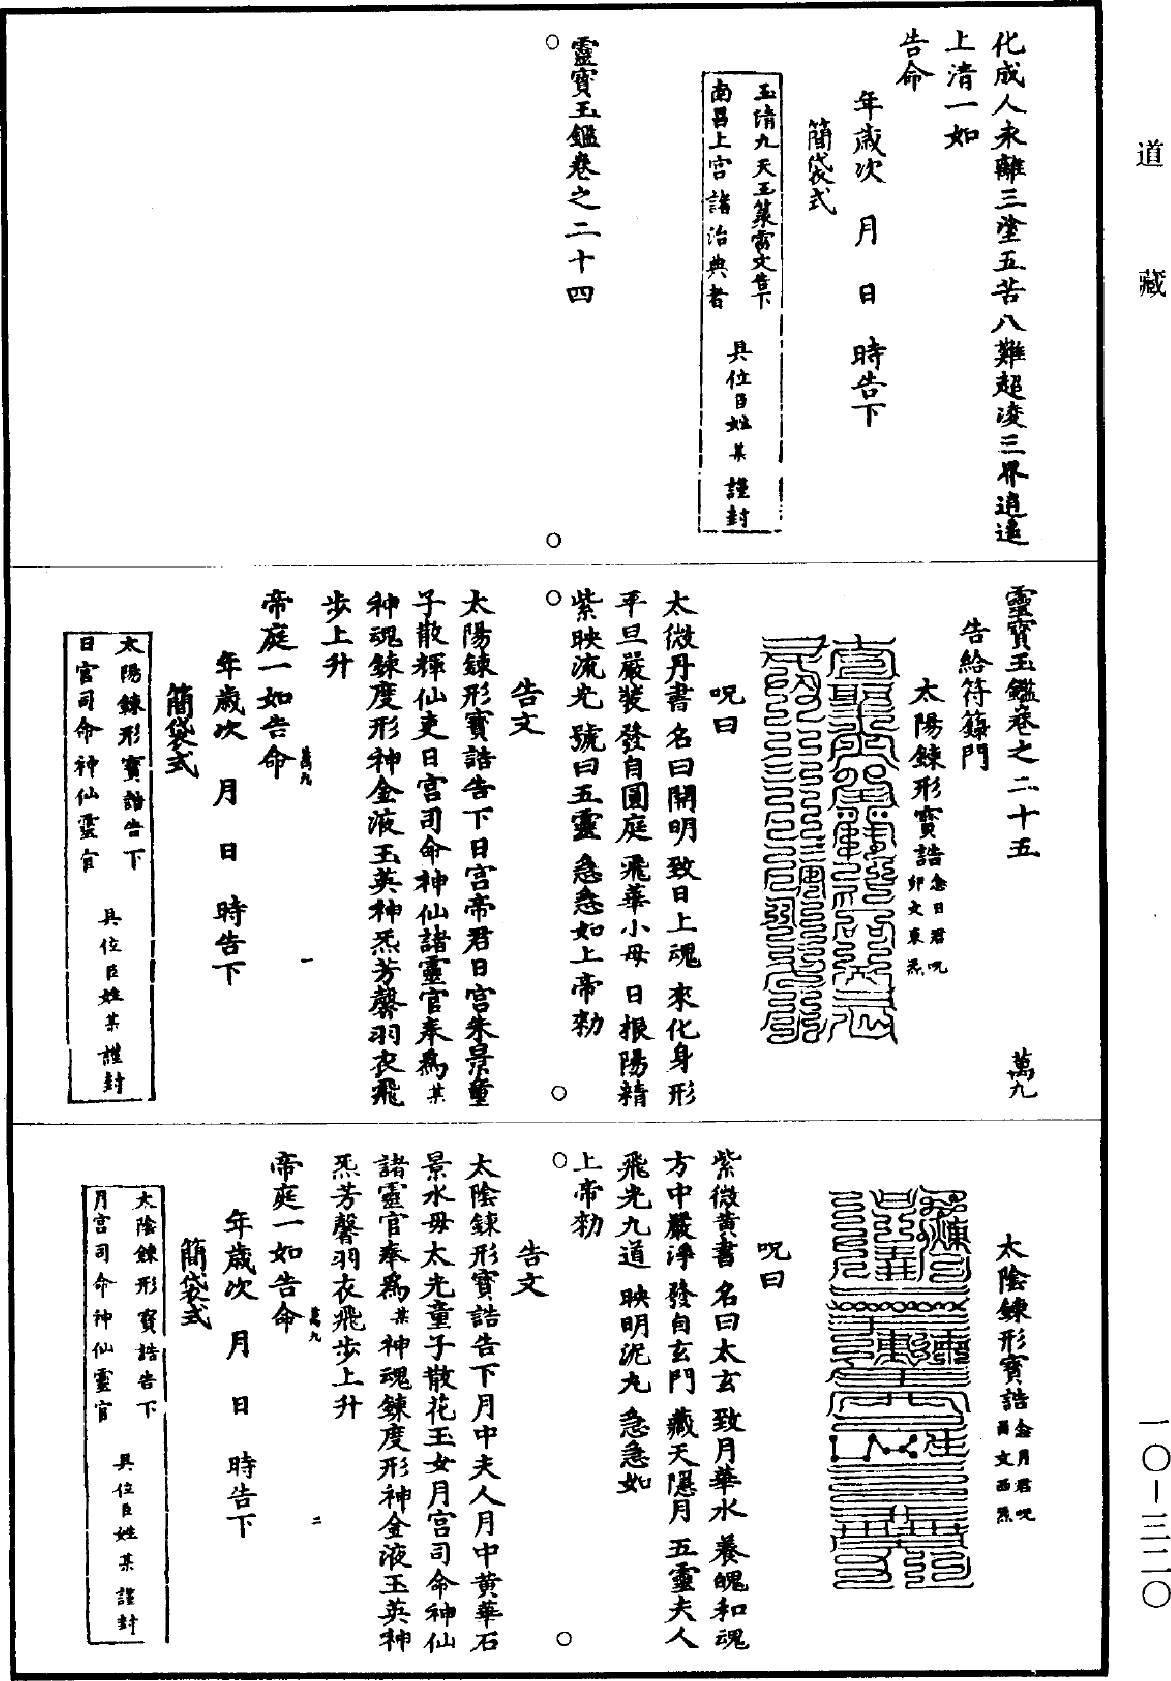 道藏
化成人永離三塗五苦八難超凌三界逍遙
上清一如
告命
年歲次　月　日　時告下
簡袋式
玉清九天玉篆雷文告下
南昌上宮諸治典者
具位臣姓某謹封
靈寶玉鑑卷之二十四
靈寶玉鑑卷之二十五　萬九
告給符籙門
太陽鍊形寶誥念日君呪
卯文東炁
呪曰
太微丹書　名曰開明　致日上魂　來化身形
平旦嚴裝　發自圓庭　飛華小母　日根陽精
紫映流光　號曰五靈　急急如上帝勑
告文
太陽鍊形寶誥告下日宮帝君日宮朱景童
子散輝仙吏日宮司命神仙諸靈官奉為某
神魂鍊度形神金液玉英神炁芳馨羽衣飛
步上升
帝庭一如告命
萬九　一
年歲次　月　日　時告下
簡袋式
太陽鍊形寶誥告下
日宮司命神仙靈官
具位臣姓某謹封
太陰鍊形寶誥念月君呪
酉文西炁
呪曰
紫微黃書　名曰太玄　致月華水　養魄和魂
方中嚴淨　發自玄門　藏天隱月　五靈夫人
飛光九道　映明泥丸　急急如
上帝勑
告文
太陰鍊形寶誥告下月中夫人月中黃華石
景水母太光童子散花玉女月宮司命神仙
諸靈官奉為某神魂鍊度形神金液玉英神
炁芳馨羽衣飛步上升
帝庭一如告命
萬九　二
年歲次　月　日　時告下
簡袋式
太陰鍊形寶誥告下
月宮司命神仙靈官
具位臣姓某謹封
一〇—三二〇